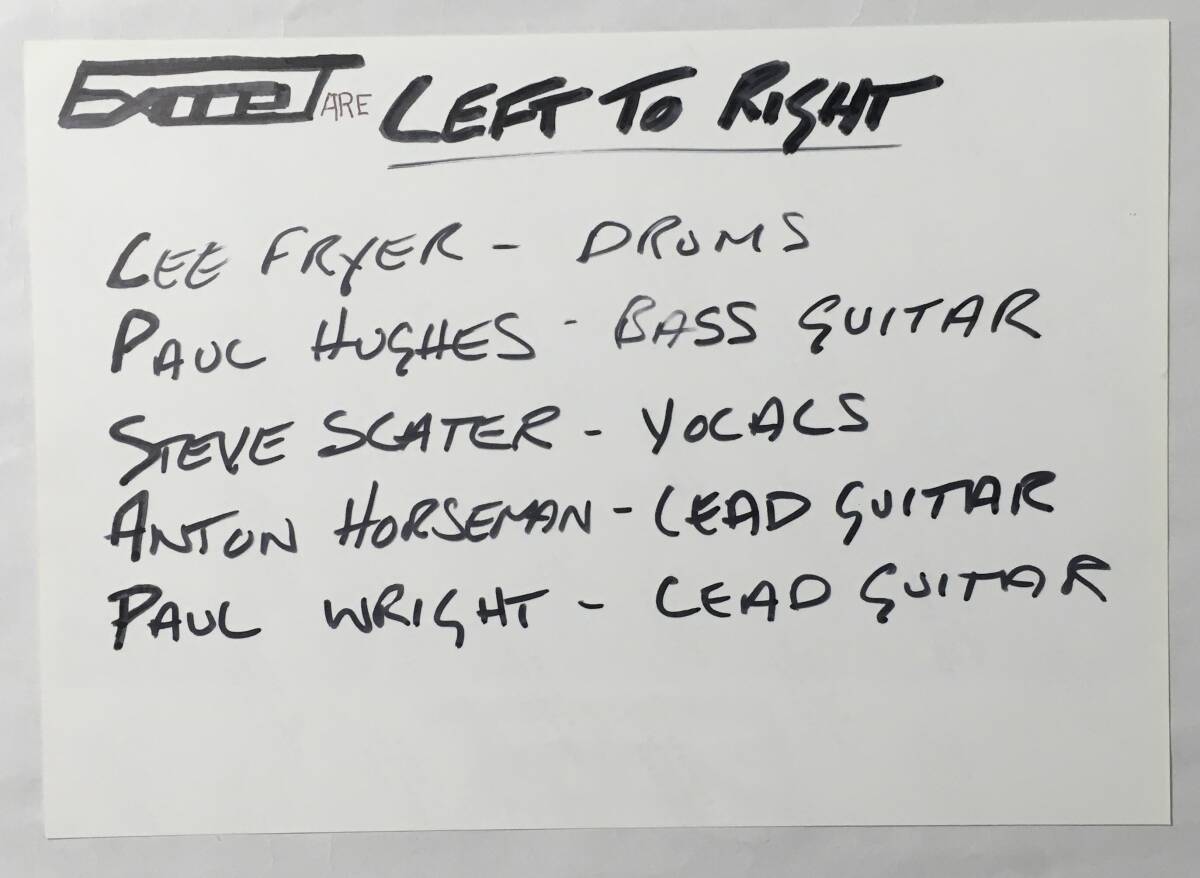 ARE LEFT TO RIGHT
LEE FRYER - DRUMS
PAUL HUGHES - BASS GUITAR
STEVE SLATER - VOCALS
ANTON HORSEMAN - LEAD GUITAR
PAUL WRIGHT - LEAD GUITAR